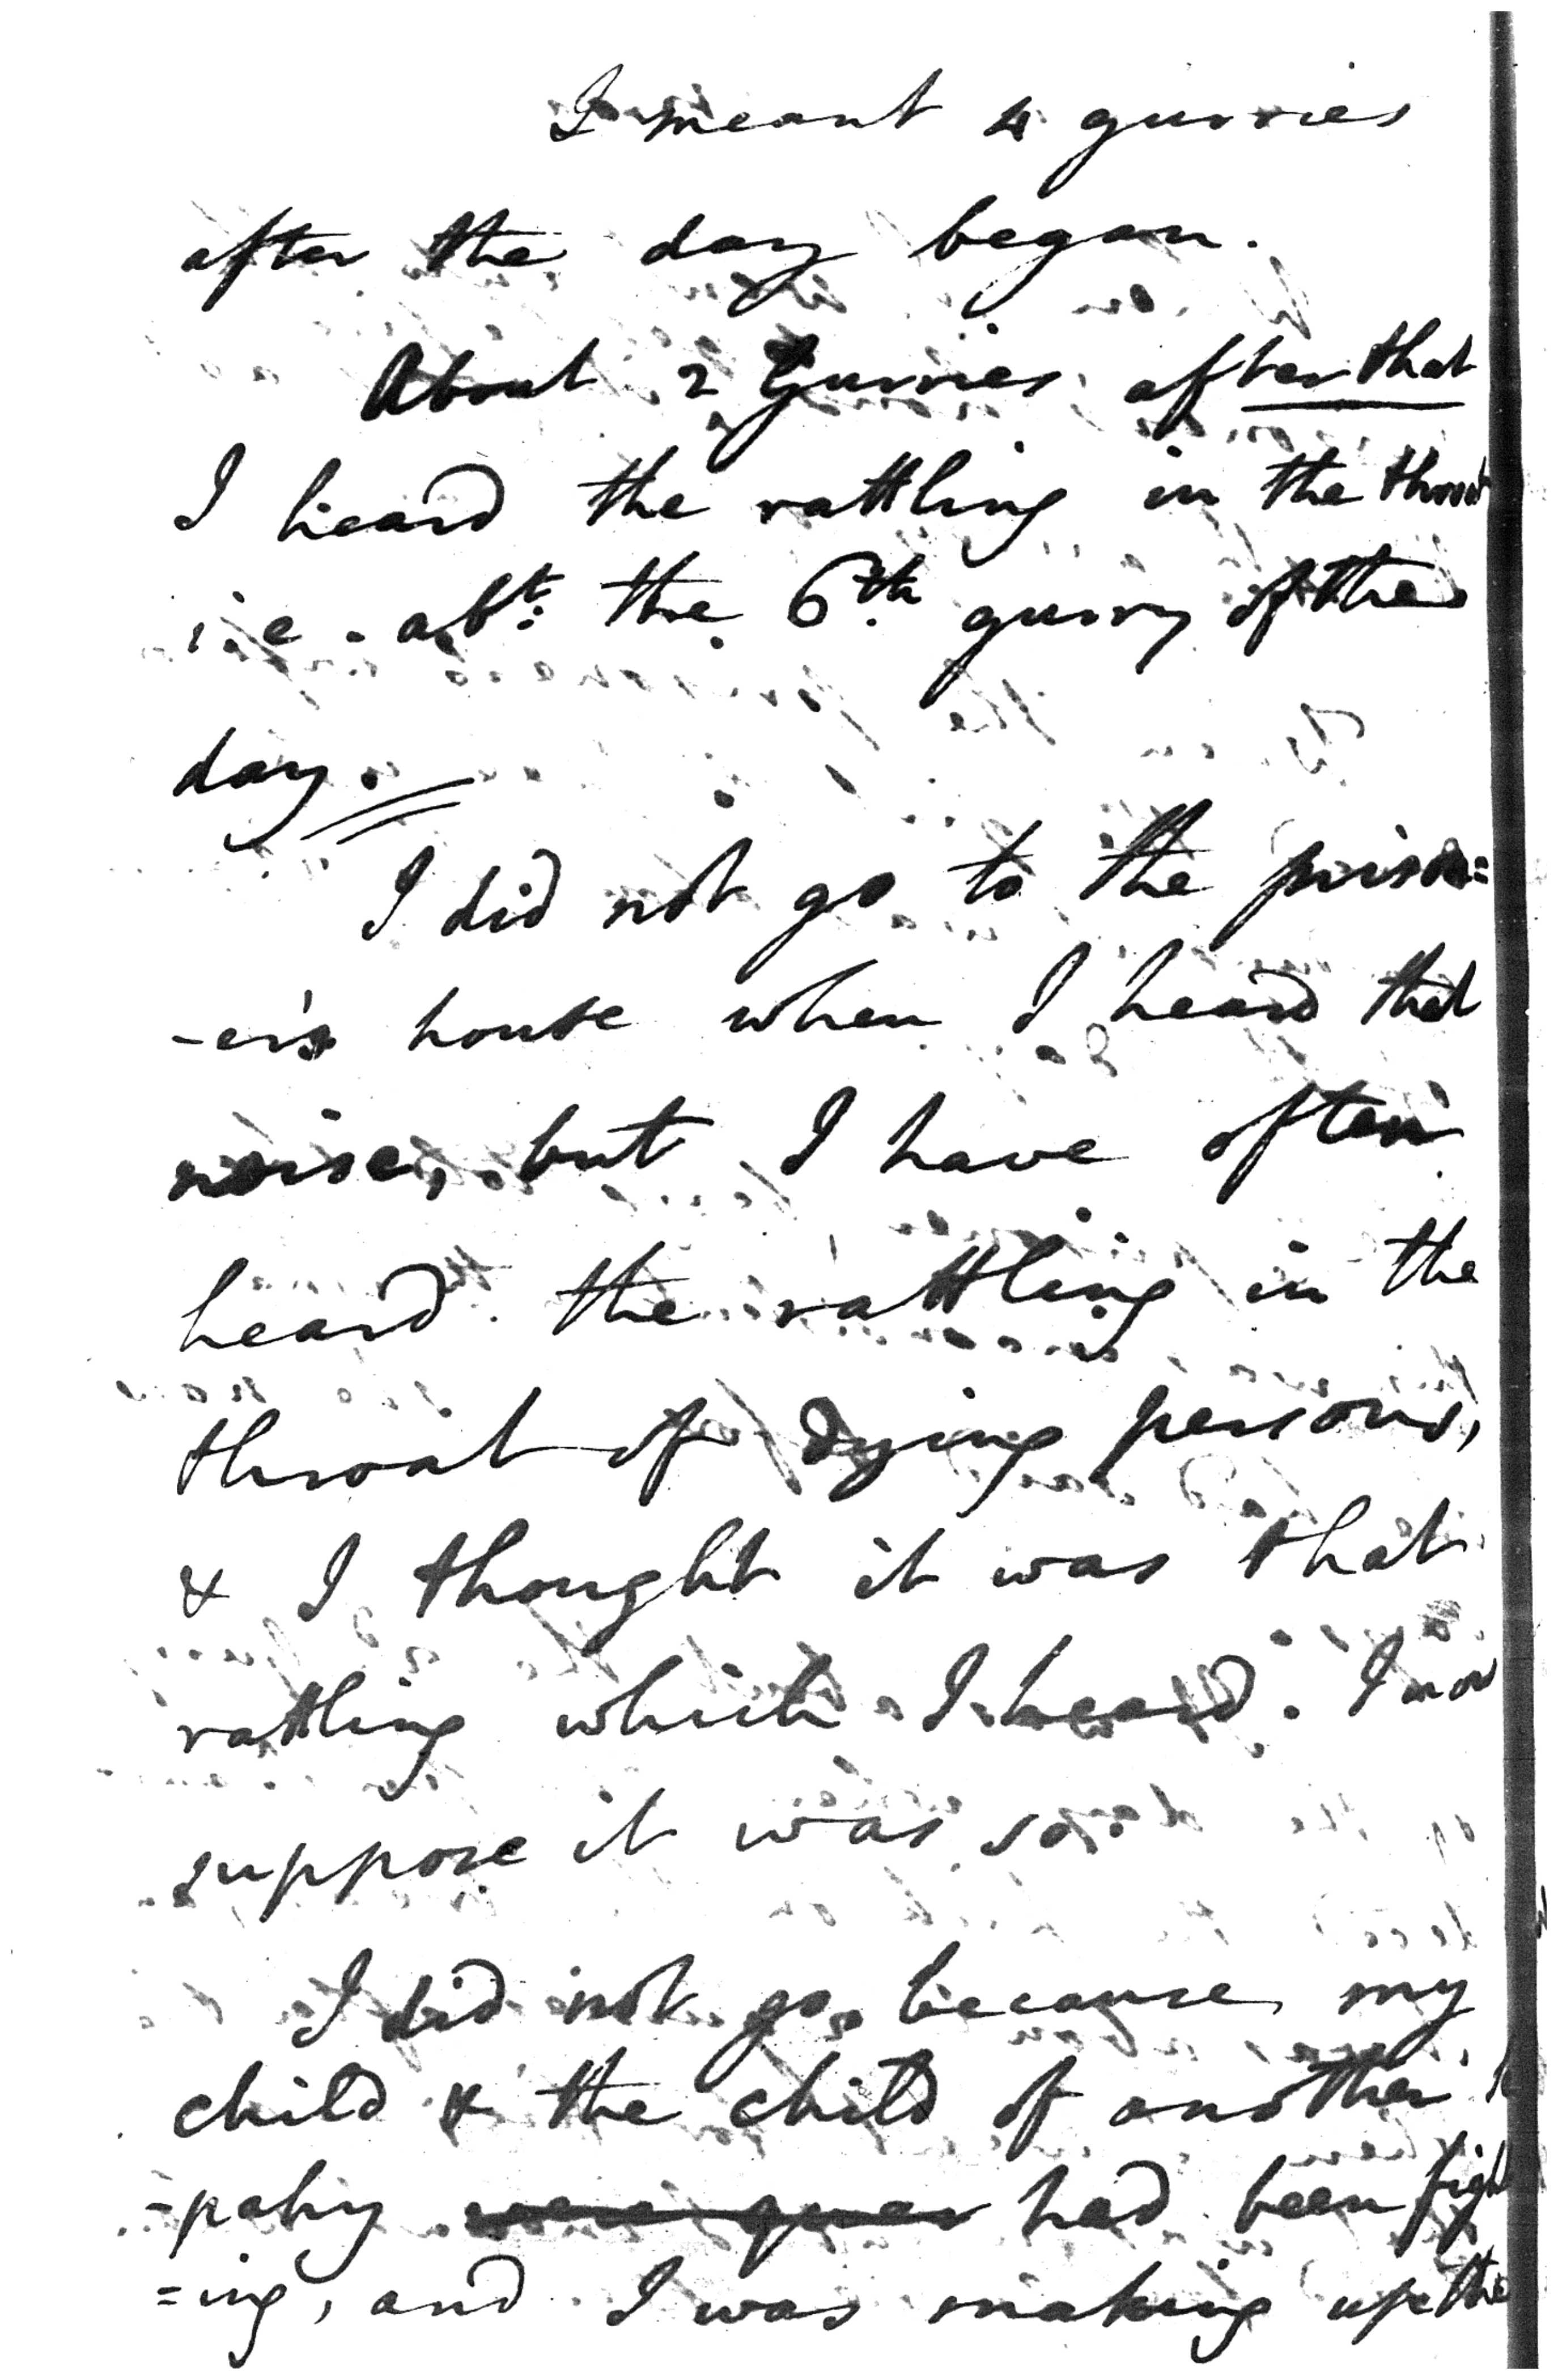 I meant 4 gurries
after the day began.
About 2 Gurries after that
I heard the rattling in the throat
i.e. abt. the 6th gurry of the
day.
I did not go to the prison=
-er's house when I heard that
noise, but I have often
heard the rattling in the
throat of dying persons,
& I thought it was that
rattling which I heard. I now
suppose it was so.
I did not go because my
child & the child of another
=pahy were quar had been fight
=ing, and I was making up the